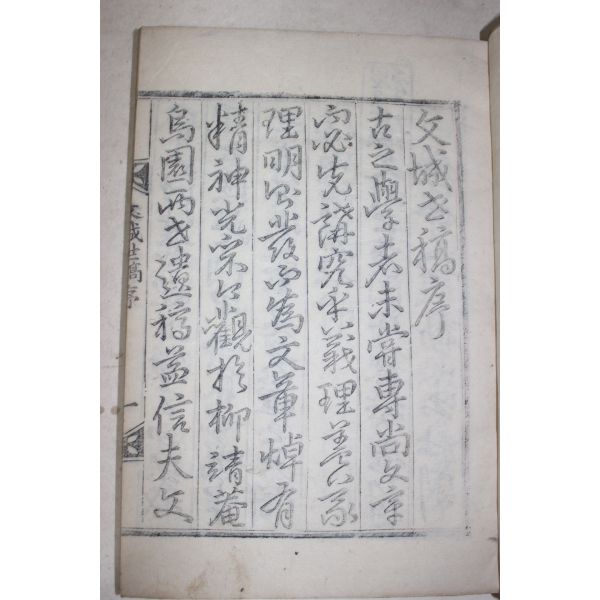 文城世稿序
古之學者未嘗專尚文章
而必先講究乎義理盖義
理明則發而為文章焯有
精神光宷今觀於柳靖菴
烏園兩世遺稿益信夫文
文城世稿序
一